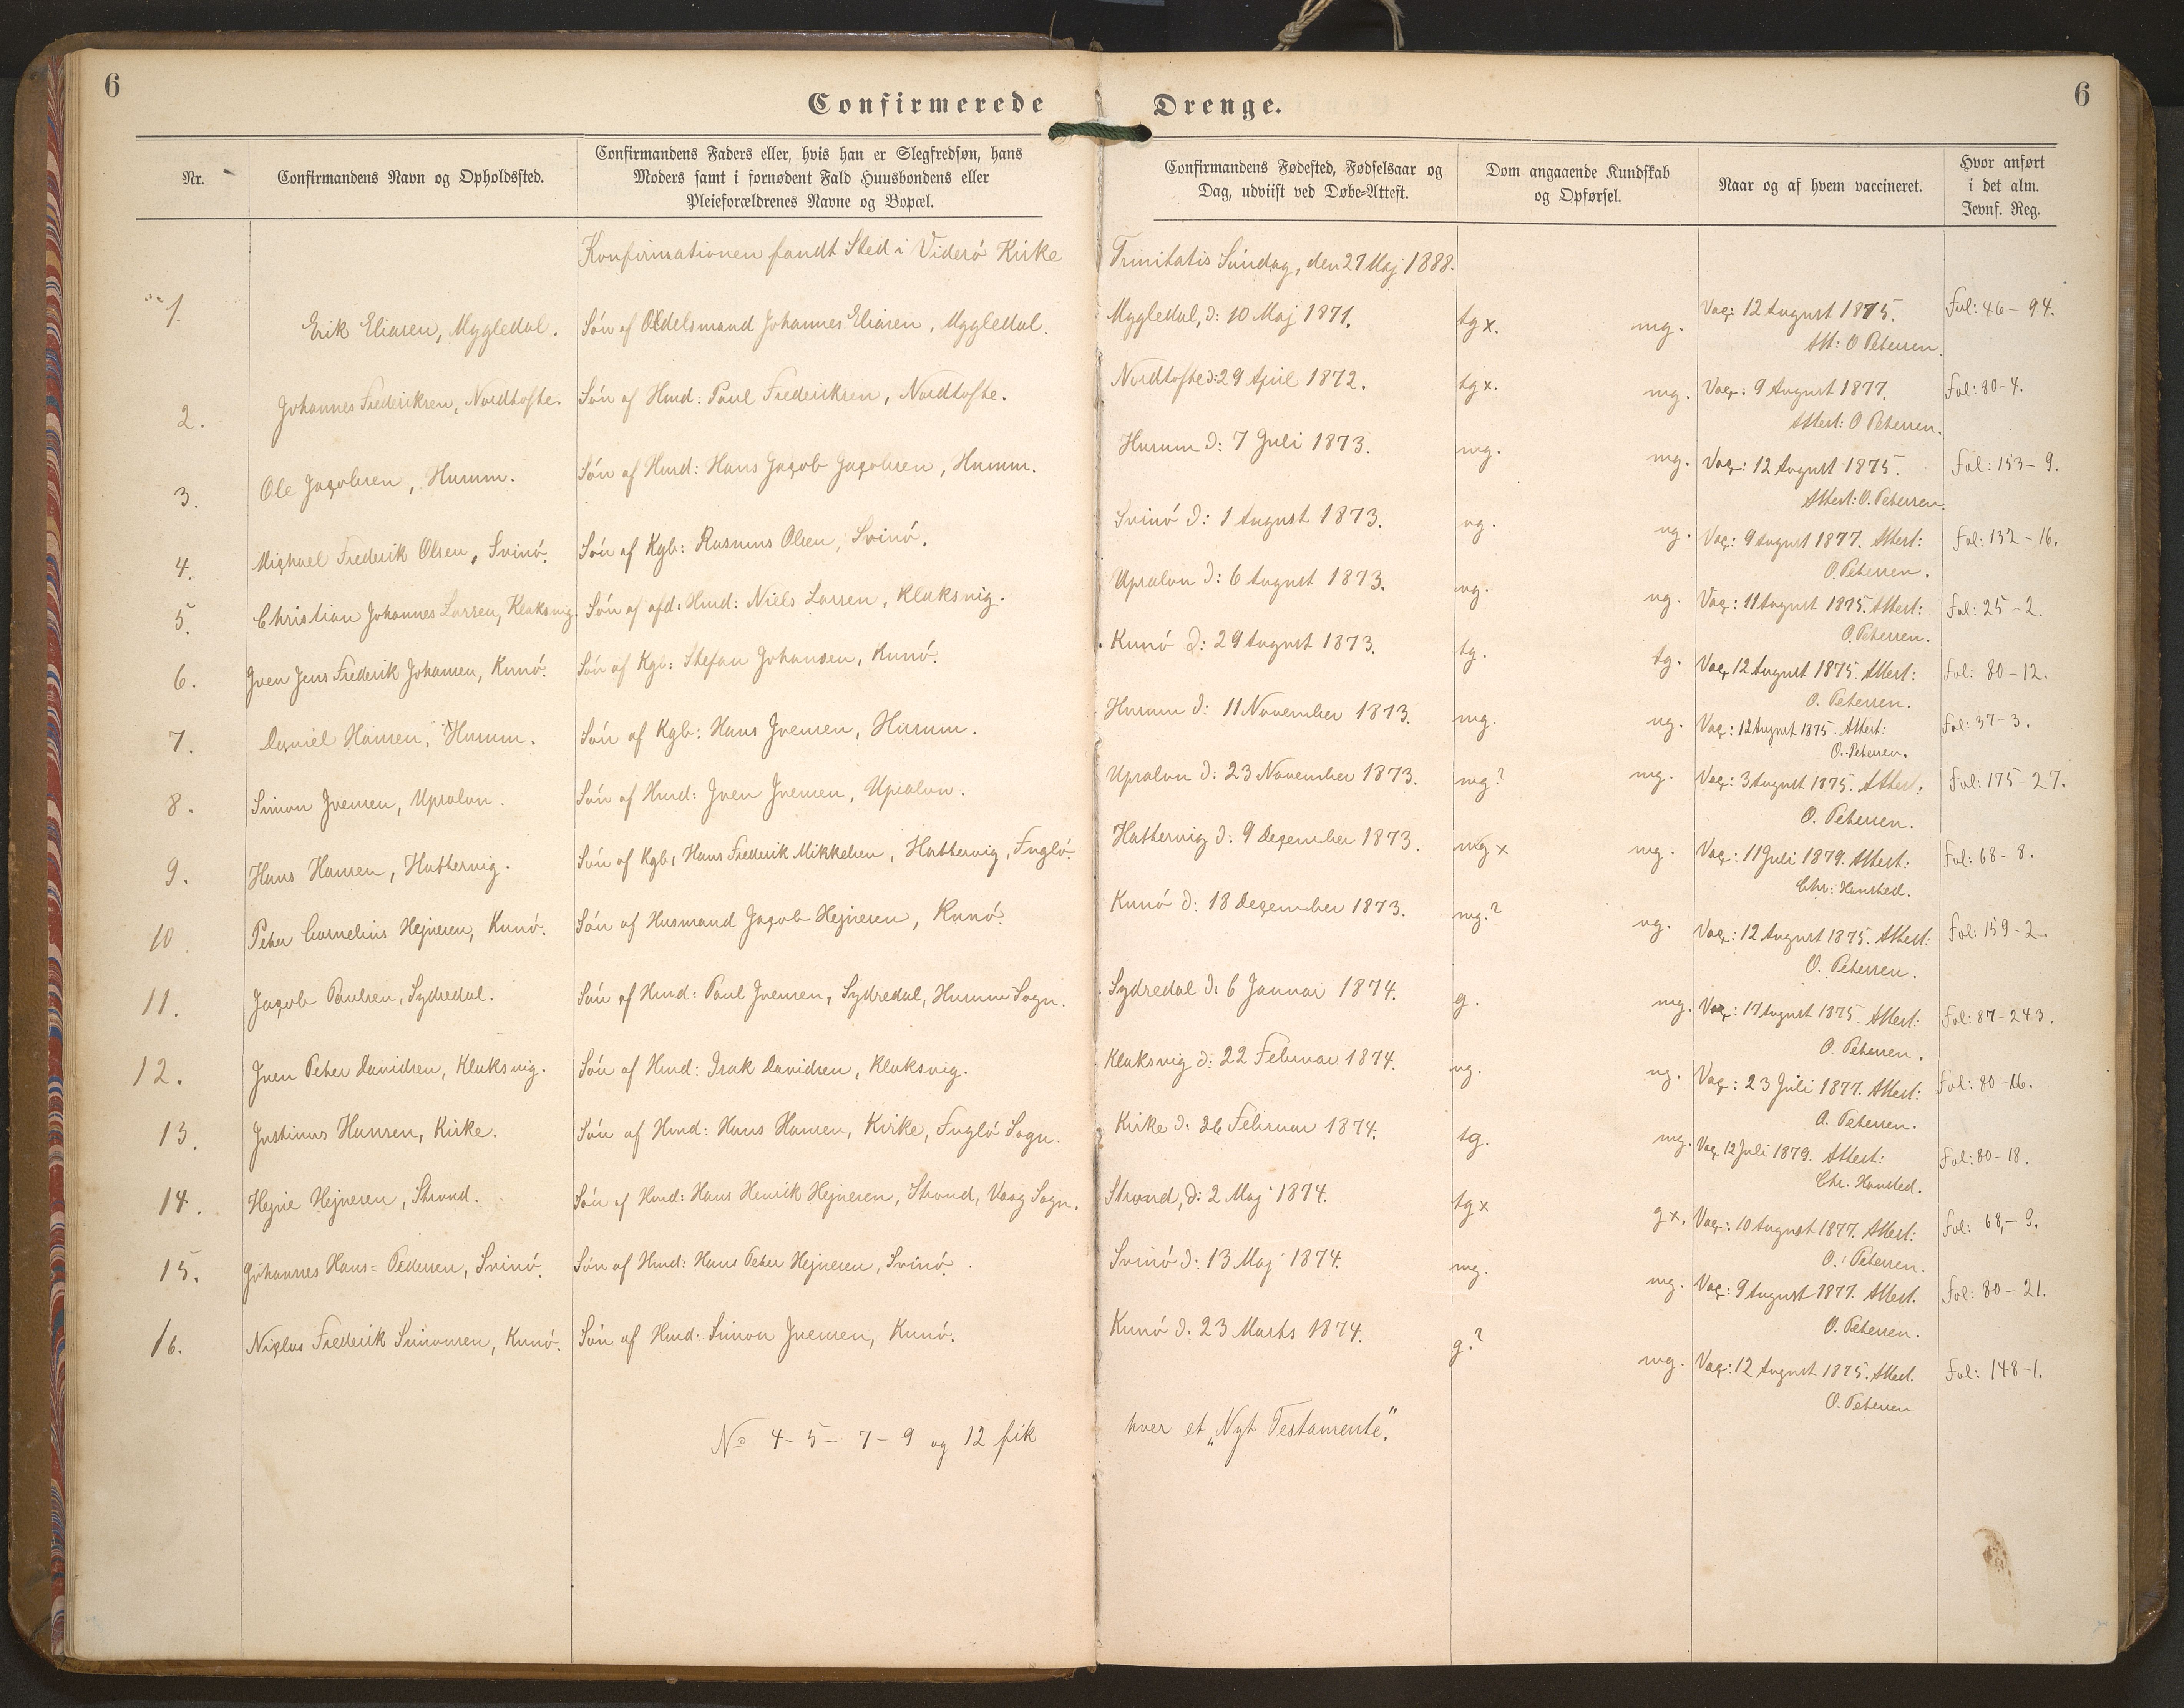 6
6
Confirmerede Drenge.
Nr.
Confirmandens Navn og Opholdssted.
Confirmandens Faders eller, hvis han er Slegfredsøn, hans
Moders samt i fornødent Fald Huusbondens eller
Pleieforældrenes Navne og Bopæl.
Confirmandens Fødested, Fødselsaar og
Dag, udviist ved Døbe-Attest.
Dom angaaende Kundskab
og Opførsel.
Naar og af hvem vaccineret.
Hvor anført
i det alm.
Jevnf. Reg.
Konfirmationen fandt Sted i Viderö Kirke Trinitatis Søndag, den 27 Maj 1888.
1. Erik Eliasen, Mygledal. Sön af Odelsmand Johannes Eliasen, Mygledal. Mygledal, d: 10 Maj 1871. tg x. mg. Vaç: 12 August 1875. Fol: 46 - 94.
Att: O Petersen.
2. Johannes Frederiksen, Nordtofte. Sön af Hmd: Paul Frederiksen, Nordtofte. Nordtofte d: 29 April 1872. tg x. mg. Vaç: 9 August 1877. Fol: 80-4.
Attest: O Petersen.
3. Ole Jaçobsen, Husum. Sön af Hmd: Hans Jaçob Jaçobsen, Husum. Husum d: 7 Juli 1873. mg. mg. Vaç: 12 August 1875. Fol: 153 - 9.
Attest: O. Petersen.
4. Miçhael Frederik Olsen, Svinö. Sön af Kgb: Rasmus Olsen, Svinö. Svinö d: 1 August 1873. ug. ug. Vaç: 9 August 1877. Attest: Fol: 132 - 16.
O. Petersen.
5. Christian Johannes Larsen, Klaksvig. Sön af afd: Hmd: Niels Larsen, Klaksvig. Upsalon d: 6 August 1873. ug. ug. Vaç: 11 August 1875. Attest: Fol: 25 - 2.
O. Petersen.
6. Jven Jens Frederik Johansen, Kunö. Sön af Kgb: Stefan Johansen, Kunö. Kunö d: 29 August 1873. tg. tg. Vaç 12 August 1875. Attest: Fol: 80 - 12.
O. Petersen.
7. Daniel Hansen, Husum. Sön af Kgb: Hans Jvensen, Husum. Husum d: 11 November 1873. mg. ug. Vaç: 12 August 1875. Attest: Fol: 37 - 3.
O. Petersen.
8. Simon Jvensen, Upsalon. Sön af Hmd: Jven Jvensen, Upsalon. Upsalon d: 23 November 1873. mg? mg. Vaç: 3 August 1875. Attest: Fol: 175 - 27.
O. Petersen.
9. Hans Hansen, Hattervig. Sön af Kgb: Hans Frederik Mikkelsen, Hattervig, Fuglö. Hattervig d: 9 Deçember 1873. mg x mg. Vaç: 11 Juli 1879. Attest: Fol: 68 - 8.
Chr: Hansted.
10. Peter Cornelius Hejnesen, Kunö. Sön af Husmand Jaçob Hejnesen, Kunö. Kunö d: 18 Deçember 1873. mg.? ug. Vaç: 12 August 1875. Attest: Fol: 159 - 2.
O. Petersen.
11. Jaçob Paulsen, Sydredal. Sön af Hmd: Paul Jvensen, Sydredal, Husum Sogn. Sydredal d: 6 Januar 1874. g. mg. Vaç: 17 August 1875 Attest: Fol: 87 - 243.
O. Petersen.
12. Jven Peter Davidsen, Klaksvig. Sön af Hmd: Isak Davidsen, Klaksvig. Klaksvig d: 22 Februar 1874. ug. ug. Vaç: 23 Juli 1877. Attest: Fol: 80 - 16.
O. Petersen.
13. Justinus Hansen, Kirke. Sön af Hmd: Hans Hansen, Kirke, Fuglö Sogn. Kirke d. 26 Februar 1874. tg. mg. Vaç 12 Juli 1879. Attest: Fol: 80 - 18.
Chr. Hansted.
14. Hejne Hejnesen, Strond. Sön af Hmd: Hans Henrik Hejnesen, Strond, Vaag Sogn. Strond, d: 2 Maj 1874. tg x g x. Vaç: 10 August 1877. Attest: Fol: 68, - 9.
O. Petersen.
15. Johannes Hans=Pedersen, Svinö. Sön af Hmd: Hans Peter Hejnesen, Svinö. Svinö d: 13 Maj 1874. mg. mg. Vaç: 9 August 1877. Attest. Fol: 80 - 21.
O. Petersen.
16. Niçlas Frederik Simonsen, Kunö. Sön af Hmd. Simon Jvensen, Kunö. Kunö d: 23 Marts 1874. g.? mg. Vaç: 12 August 1875. Attest. Fol: 148-1.
O. Petersen
No 4 - 5 - 7 - 9 og 12 fik hver et „Nyt Testamente".